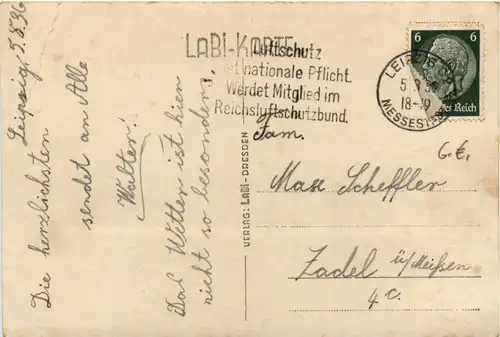 LABI-KARTE
Luftschutz
ist nationale Pflicht.
Werdet Mitglied im
Reichsluftschutzbund.
6 6
Deutsches Reich
LEIPZIG
18-19
MESSESTADT
Leipzig, 5.8.36
Die herzlichsten
sendet an Alle
Walter.
Das Wetter ist hier
nicht so besonders.
VERLAG: LABI-DRESDEN
Fam.
Max Scheffler
Zadel ü/Meißen
4c.
6.€.